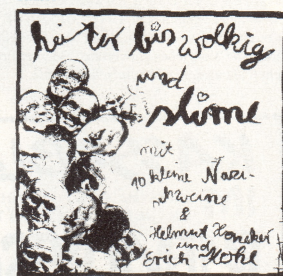 heiter bis wolkig
und
slime
mit
10 kleine Nazi-
schweine
&
Helmut Honecker
und
Erich Kohl